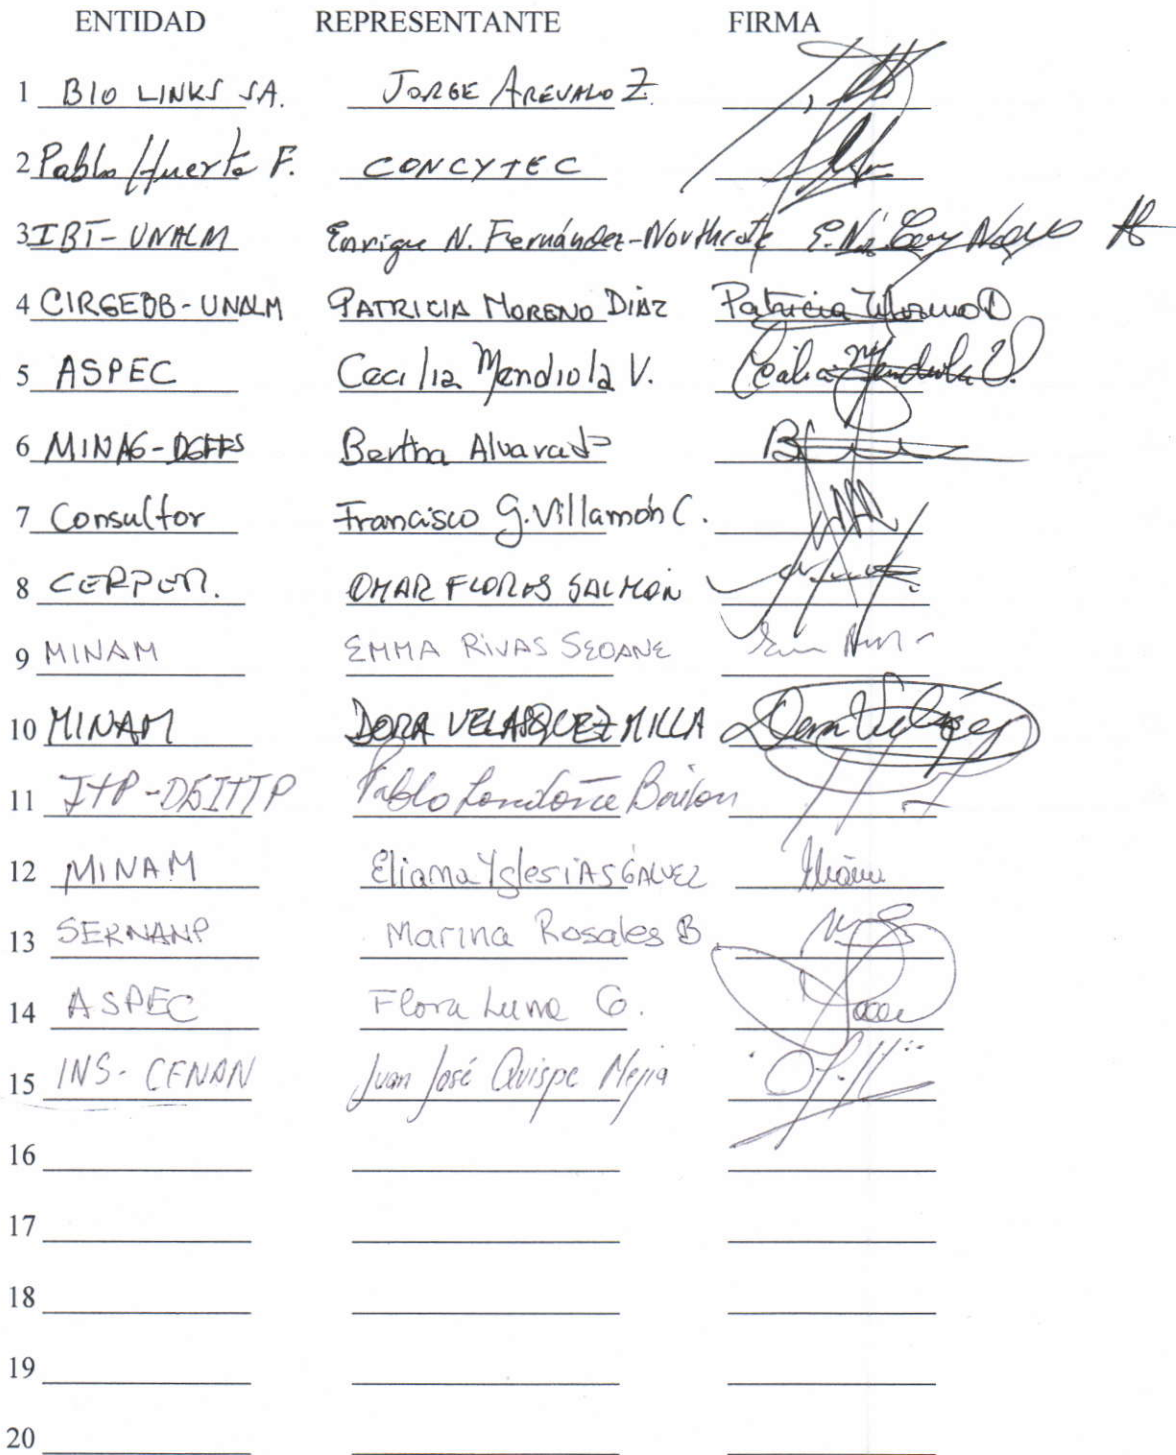 ENTIDAD REPRESENTANTE FIRMA
1 BIO LINKS SA. JORGE AREVALO Z.
2 Pablo Huerta F. CONCYTEC
3 IBT-UNALM Enrique N. Fernández-Northcote
4 CIRGEBB-UNALM PATRICIA MORENO DIAZ Patricia Moreno D
5 ASPEC Cecilia Mendiola V. Cecilia Mendiola V.
6 MINAG-DGFFS Bertha Alvarado
7 Consultor Francisco G. Villamón C.
8 CERPER. OMAR FLORES SALMON
9 MINAM EMMA RIVAS SEOANE
10 MINAM DORA VELASQUEZ MILLA Dora Velásquez
11 Pablo
12 MINAM Eliana Yglesias GALVEZ Eliana
13 SERNANP Marina Rosales B.
14 ASPEC Flora Luna G.
15 INS-CENAN Juan José Quispe Mejia
16
17
18
19
20